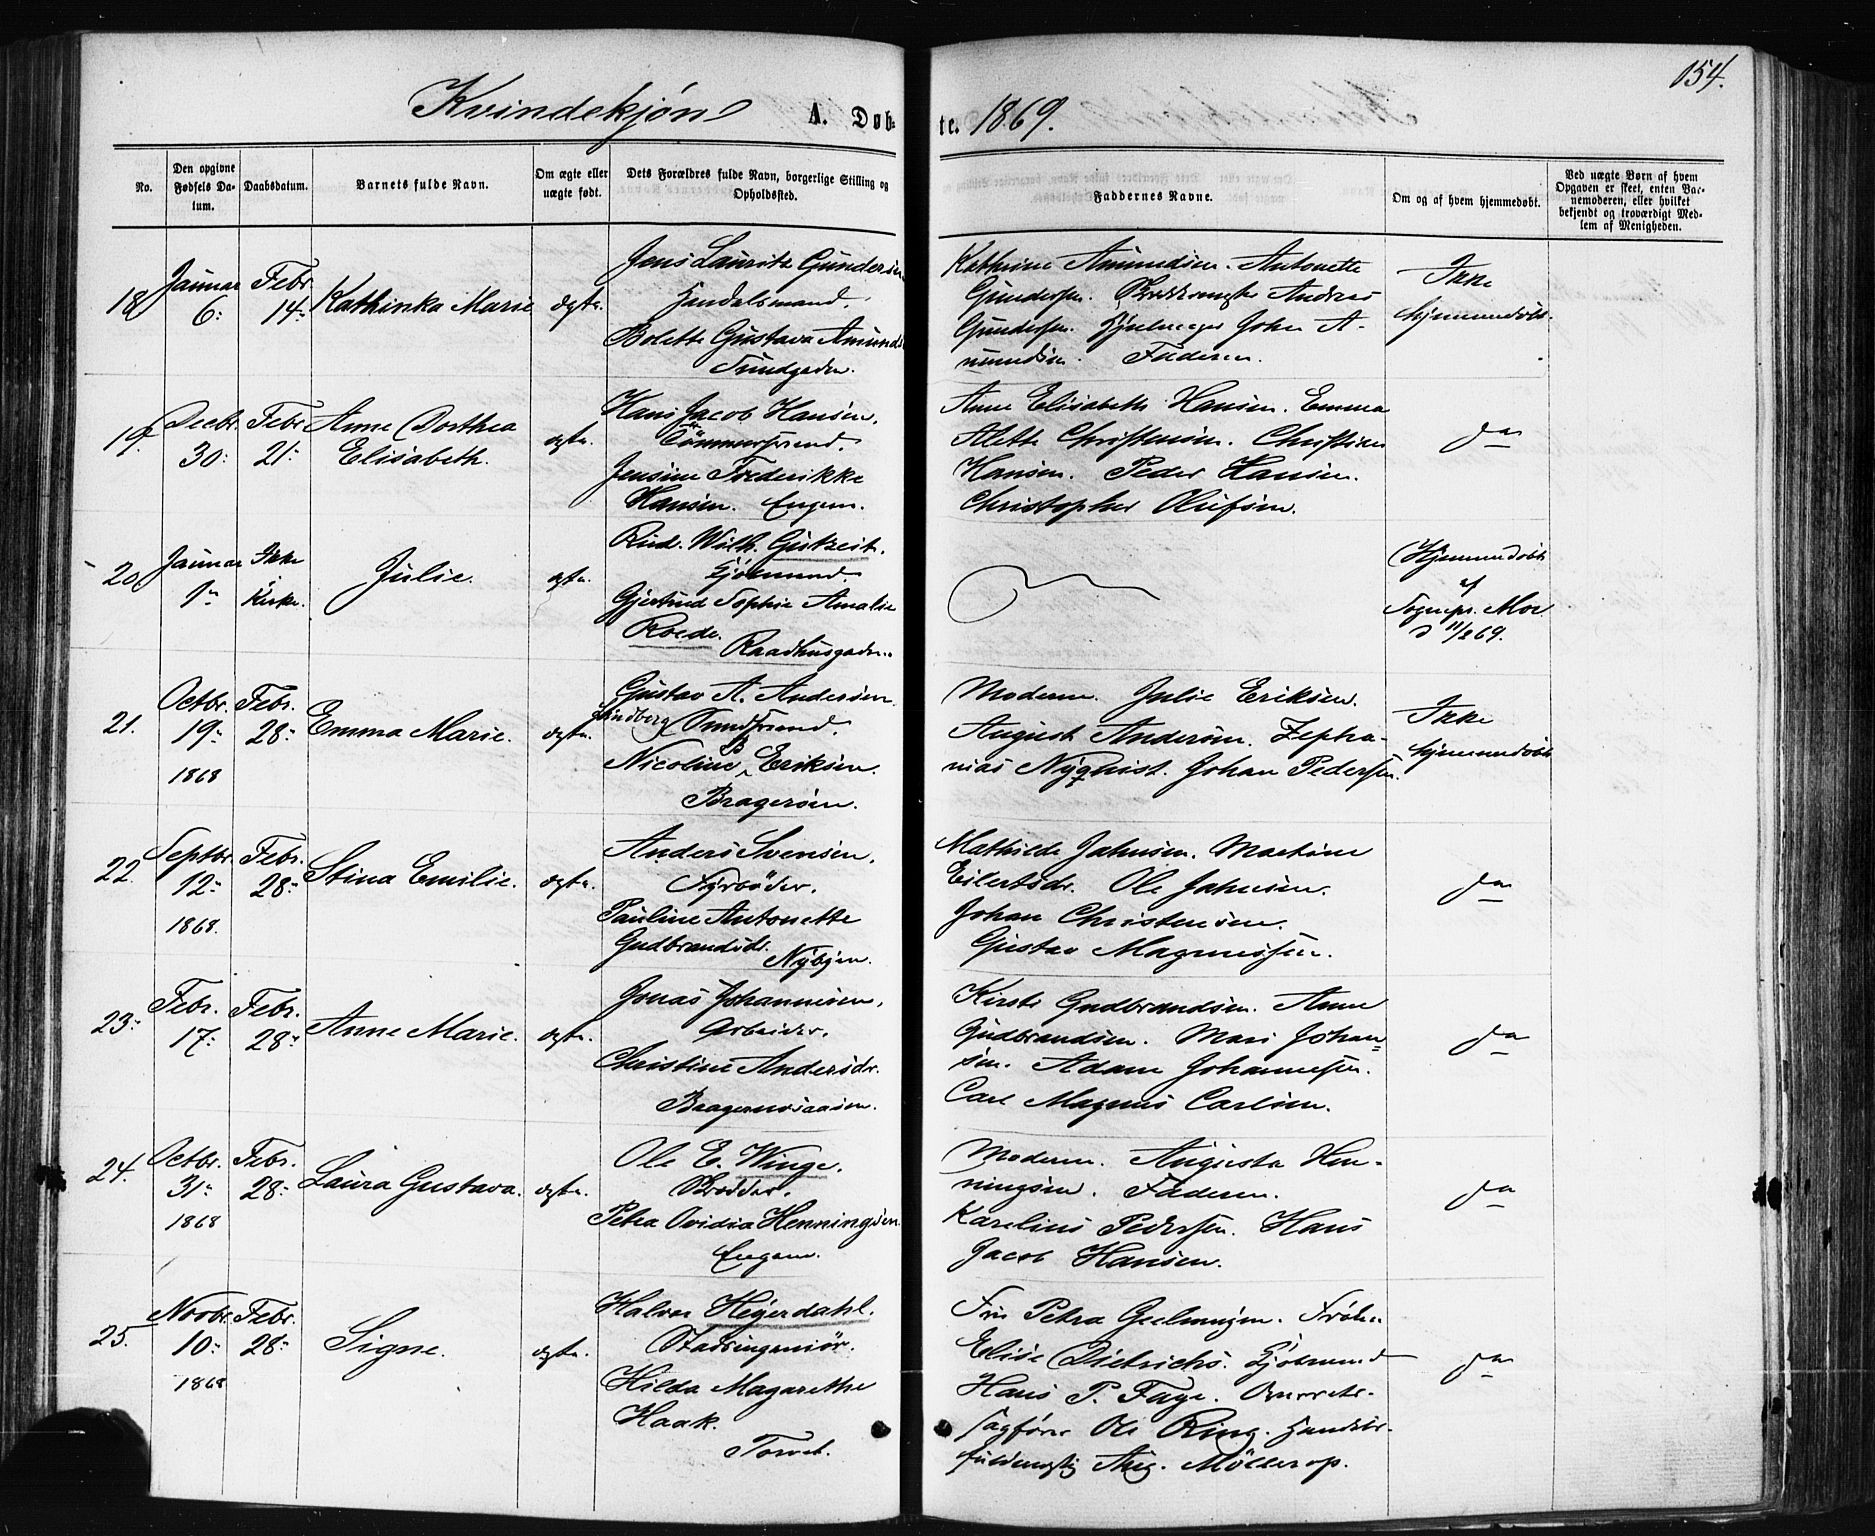 154.
Kvindekjøn A. Døbte. 1869.
No.
Den opgivne Fødsels Datum.
Daabsdatum.
Barnets fulde Navn.
Om ægte eller uægte født.
Dets Forældres fulde Navn, borgerlige Stilling og Opholdssted.
Faddernes Navne.
Om og af hvem hjemmedøbt.
Ved uægte Børn af hvem Opgaven er skeet, enten Barnemoderen, eller hvilket bekjendt og troværdigt Medlem af Menigheden.
18
Januar 6.
Febr 14.
Kathinka Marie
ægte.
Jens Lauritz Gundersen
Handelsmand.
Bolette Gustava Amunds
Sundgaden.
Kathrine Amundsen. Antonette
Gundersen. Andreas
Gundersen. Hjulmager John A-
mundsen. Faderen.
Ikke
hjemmedøbt.
19.
Decbr. 30.
Febr 21.
Anne Dorthea
Elisabeth.
ægte.
Hans Jacob Hansen.
Tømmersvend.
Jensine Frederikke
Hansen. Engene.
Anne Elisabeth Hansen. Emma
Alette Christensen. Christian
Hansen. Peder Hansen.
Christopher Olufsen.
do
20.
Januar 1
Ikke
Kirke.
Julie.
ægte.
Rud. Wilh. Gutzeit.
Kjøbmand.
Gjertrud Sophie Amalie
Roede.
Raadhusgaden.
Hjemmedøbt
af
Sognepr. Moe
d 11/2 69.
21.
Octbr. 19. 1868
Febr. 28.
Emma Marie.
ægte.
Gustav A. Andersen
Lindberg Smedsvend.
Nicoline B Eriksen.
Bragerøen.
Moderen. Julie Eriksen.
August Andersen. Zepha-
nias Nyqvist. Johan Pedersen.
Ikke
hjemmedøbt
22.
Septbr. 12. 1868.
Febr. 28.
Stina Emilie.
ægte.
Anders Svensen.
Fyrbøder.
Pauline Antonette
Gudbrandsdr. Nybyen.
Mathilde Jahnsen. Martine
Eilertsdr. Ole Jahnsen.
Johan Christensen.
Gustav Magnussen.
do
23.
Febr. 17.
Febr. 28.
Anne Marie.
ægte.
Jonas Johannesen.
Arbeider.
Christine Andersdr.
Bragernesaasen.
Kirsti Gudbrandsen. Anne
Gudbrandsen. Mari Johan=
sen. Adam Johannesen.
Carl Magnus Carlsen.
do
24.
Octbr. 31. 1868
Febr. 28.
Laura Gustava.
ægte.
Ole E. Winge.
Petra Ovidia Henningsen
Engene.
Moderen. Augusta Hen-
ningsen. Faderen.
Karelius Pedersen. Hans
Jacob Hansen.
do
25.
Novbr. 10. 1868
Febr. 28.
Signe.
ægte.
Halvor Heyerdahl.
Stadsingeniør.
Hilda Magarethe
Haak.
Torvet.
Fru Petra Geelmuyen. Frøken
Elise Dietrichs. Kjøbmand
Hans P. Faye. Overrets-
sagfører Ole Ring. Handels-
fuldmægtig Aug. Møllerop.
do